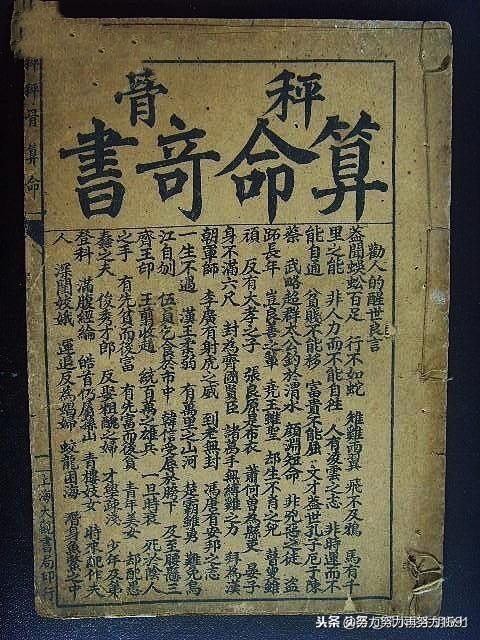 秤骨
算命竒書
勸人的醒世良言
蓋聞蜈蚣百足 行不如蛇 雄雞兩翼 飛不及鴉 馬有千
里之能 非人力而不能自往 人有凌雲之志 非時運而不
能自通 貧賤不能移 富貴不能屈 文才蓋世孔子厄于陳
蔡 武略超群太公釣於渭水 顏淵短命 非兇惡之徒 盜
跖長年 豈良善之輩 堯王雖聖 却生不肖之兒 瞽叟雖
頑 反有大孝之子 張良原是布衣 蕭何曾為縣吏 晏子
身不滿六尺 封為齊國賢臣 諸萬手無縛雞之力 拜為漢
朝軍師 李廣有射虎之威 到老無封 馮唐有安邦之志
一生不遇 漢王雖弱 有萬里之山河 楚霸雖勇 難免烏
江自刎 伍員乞食於市中 韓信受辱於胯下 及至腰懸三
齊王印 王翦收趙 統百萬之雄兵 一旦時衰 死於陰人
之手 有先貧而後富 有先富而後貧 青年美女 却配愚
蠢之夫 俊秀才郎 反娶粗醜之婦 才學疎淺 少年及第
登科 滿腹經綸 皓首仍屬孫山 青樓妓女 時來配作夫
人 深閨嫦娥 運退反為娼婦 蛟龍困海 潛身魚鱉之中
秤骨算命
上海大觀書局印行
头条 @努力努力再努力1591